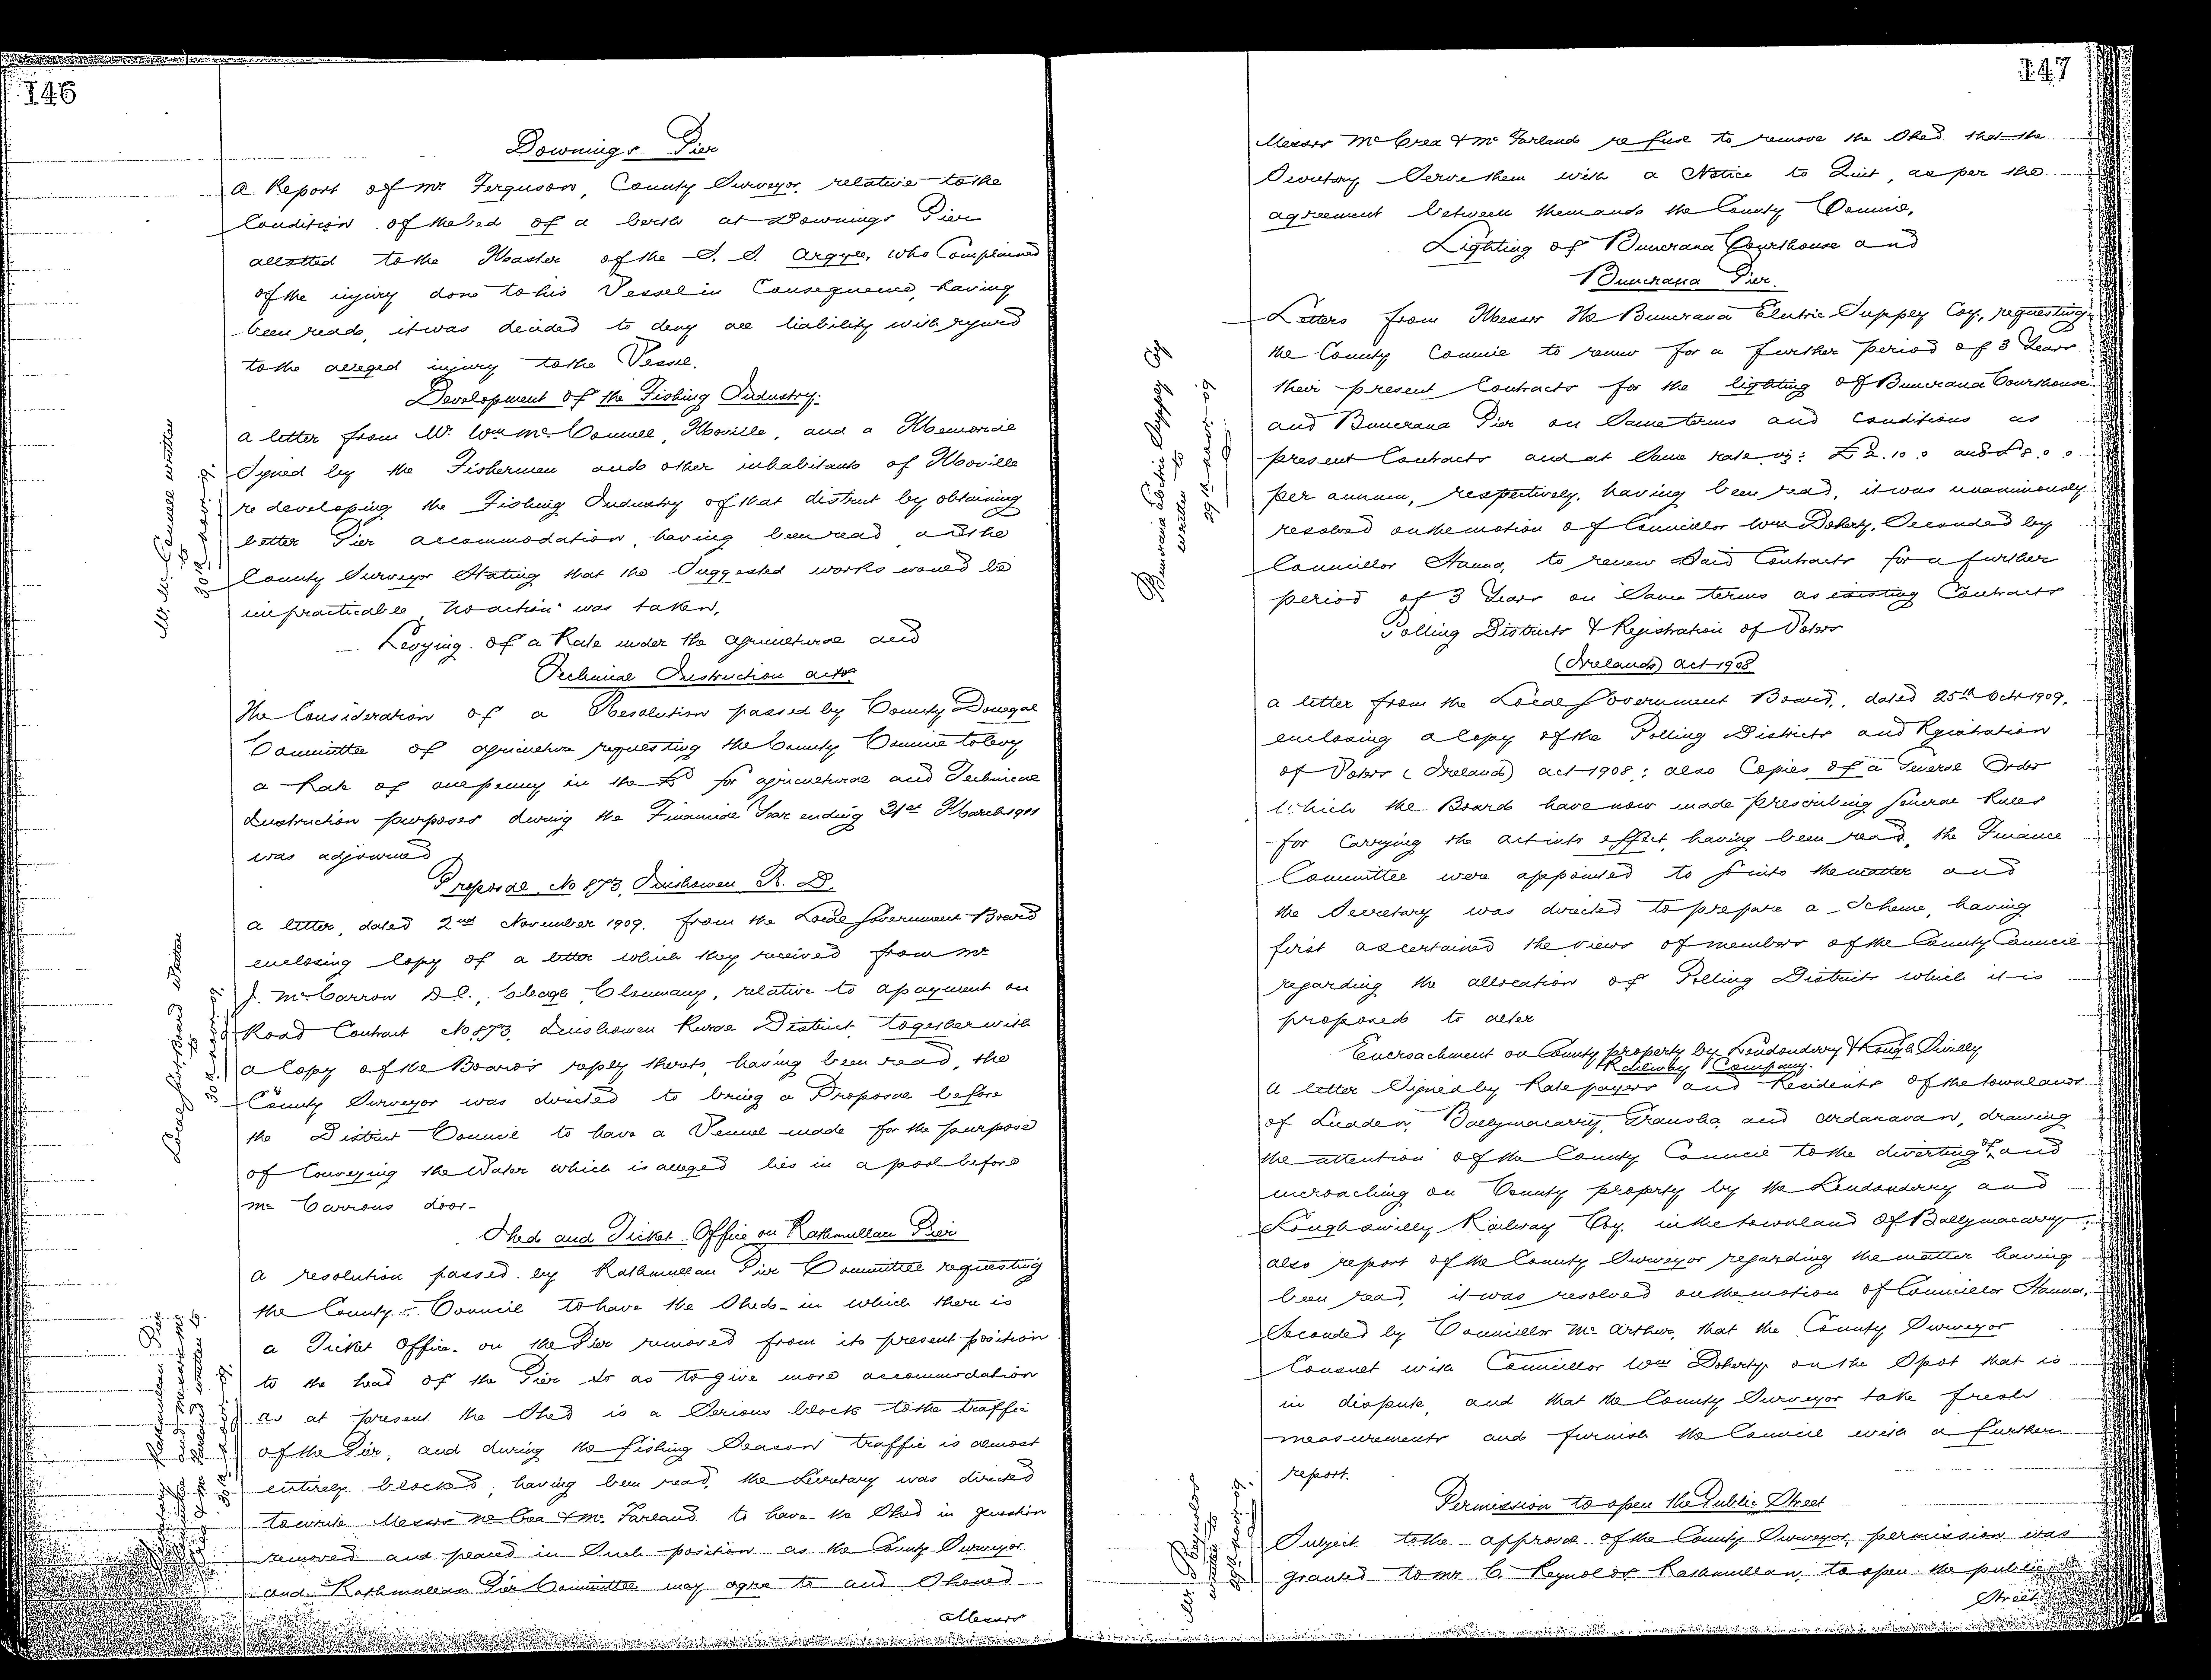 146
Downings Pier
A Report of Mr Ferguson, County Surveyor, relative to the
Condition of the bed of a berth at Downings Pier
allotted to the Master of the S. S. Argyle, who Complained
of the injury done to his Vessel in Consequence, having
been read, it was decided to deny all liability with regard
to the alleged injury to the Vessel.
Development of the Fishing Industry.
Mr. McConnell written
to
30th Novr 09.
A letter from Mr. Wm McConnell, Moville, and a Memorial
Signed by the Fishermen and other inhabitants of Moville
re developing the Fishing Industry of that district by obtaining
better Pier accommodation, having been read and the
County Surveyor Stating that the Suggested works would be
impracticable, no action was taken.
Levying of a Rate under the Agricultural and
Technical Instruction Acts
The Consideration of a Resolution passed by County Donegal
Committee of Agriculture requesting the County Council to levy
a Rate of one penny in the £ for Agricultural and Technical
Instruction purposes during the Financial Year ending 31st March 1911
was adjourned
Proposal No 873, Inishowen R. D.
Local Govt. Board written
to
30th Novr 09.
A letter, dated 2nd November 1909. from the Local Government Board
enclosing Copy of a letter which they received from Mr
J. McCarron D.C., Cleagh, Clonmany, relative to a payment on
Road Contract No 873, Inishowen Rural District, together with
a Copy of the Board's reply thereto, having been read, the
County Surveyor was directed to bring a Proposal before
the District Council to have a Vennel made for the purpose
of Conveying the Water which is alleged lies in a pool before
Mc Carrons door-
Shed and Ticket Office on Rathmullan Pier
Rathmullan Pier
written to
30th Novr 09.
A resolution passed by Rathmullan Pier Committee requesting
the County Council to have the Shed- in which there is
a Ticket Office- on the Pier removed from its present position
to the head of the Pier so as to give more accommodation
as at present the Shed is a Serious block to the traffic
of the Pier, and during the fishing Season traffic is almost
entirely blocked, having been read, the Secretary was directed
to write Messrs McCrea & McFarland to have the Shed in question
removed and placed in Such position as the County Surveyor
and Rathmullan Pier Committee may agree to and Should
Messrs
147
Messrs McCrea & McFarland refuse to remove the Shed that the
Secretary Serve them with a Notice to Quit, as per the
agreement between them and the County Council.
Lighting of Buncrana Courthouse and
Buncrana Pier.
Buncrana Electric Supply Coy
written to
29th Novr 09
Letters from Messrs The Buncrana Electric Supply Coy, requesting
the County Council to renew for a further period of 3 Years
their present Contracts for the lighting of Buncrana Courthouse
and Buncrana Pier on Same terms and conditions as
present Contracts and at Same rate viz: £2.10.0 and £8.0.0
per annum, respectively, having been read, it was unanimously
resolved on the motion of Councillor Wm Doherty, Seconded by
Councillor Hanna, to renew Said Contracts for a further
period of 3 Years on Same terms as existing Contracts
Polling Districts & Registration of Voters
(Ireland) Act 1908
A letter from the Local Government Board, dated 25th Oct 1909,
enclosing a Copy of the Polling Districts and Registration
of Voters (Ireland) Act 1908; also Copies of a General Order
which the Board have now made prescribing General Rules
for Carrying the Act into effect, having been read, the Finance
Committee were appointed to into the matter and
the Secretary was directed to prepare a Scheme, having
first ascertained the views of members of the County Council
regarding the allocation of Polling Districts which it is
proposed to alter
Encroachment on County property by Londonderry & Lough Swilly
Railway Company.
A letter Signed by Ratepayers and Residents of the townlands
of Luddan, Ballymacarry, Gransha, and Ardaravan, drawing
the attention of the County Council to the diverting of and
encroaching on County property by the Londonderry and
Lough Swilly Railway Coy. in the townland of Ballymacarry;
also report of the County Surveyor regarding the matter having
been read, it was resolved on the motion of Councillor Hanna,
Seconded by Councillor McArthur, that the County Surveyor
Consult with Councillor Wm Doherty on the Spot that is
in dispute, and that the County Surveyor take fresh
measurements and furnish the Council with a further
report.
Permission to open the Public Street
Mr Reynolds
written to
29th Novr 09.
Subject to the approval of the County Surveyor, permission was
granted to Mr C. Reynolds Rathmullan, to open the public
Street